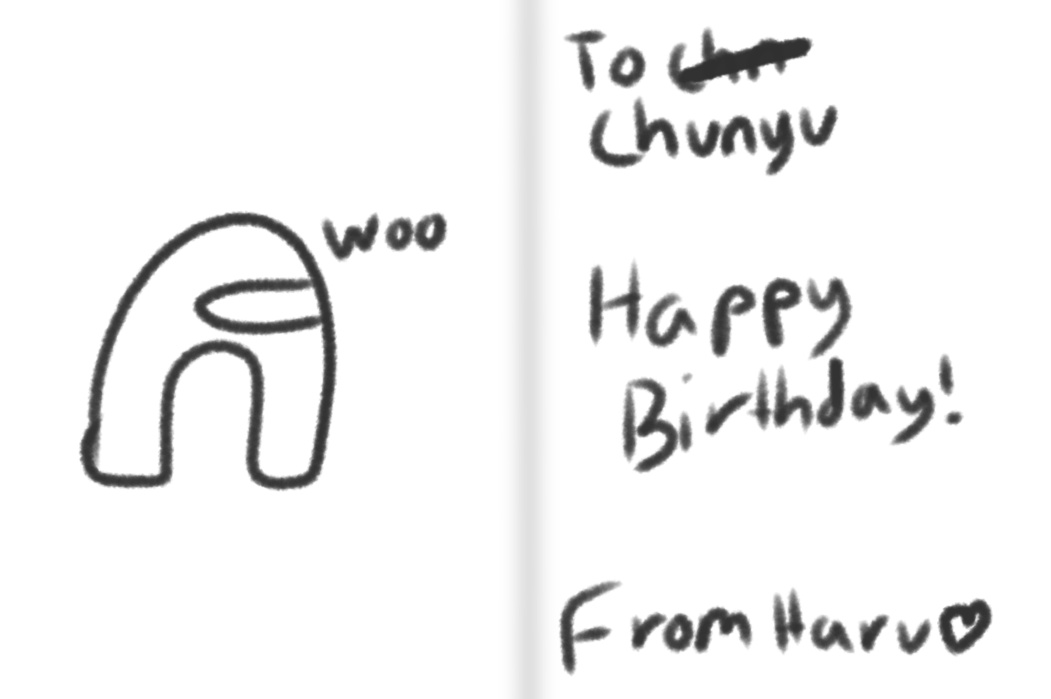 woo
To
Chunyu
Happy
Birthday!
From Haru♡